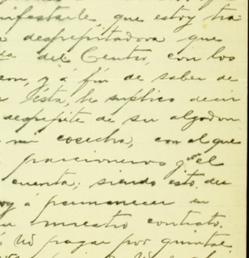 nifestarle, que estoy tra
a despepitadora que
del Centro, con los
con, y á fin de saber de
ésta, le suplico decir
despepite de su algodon
mi cosecha, con el que
parcioneros y el
cuenta; siendo esto de
y á permanecer en
nuestro contrato.
No pagar por quintal